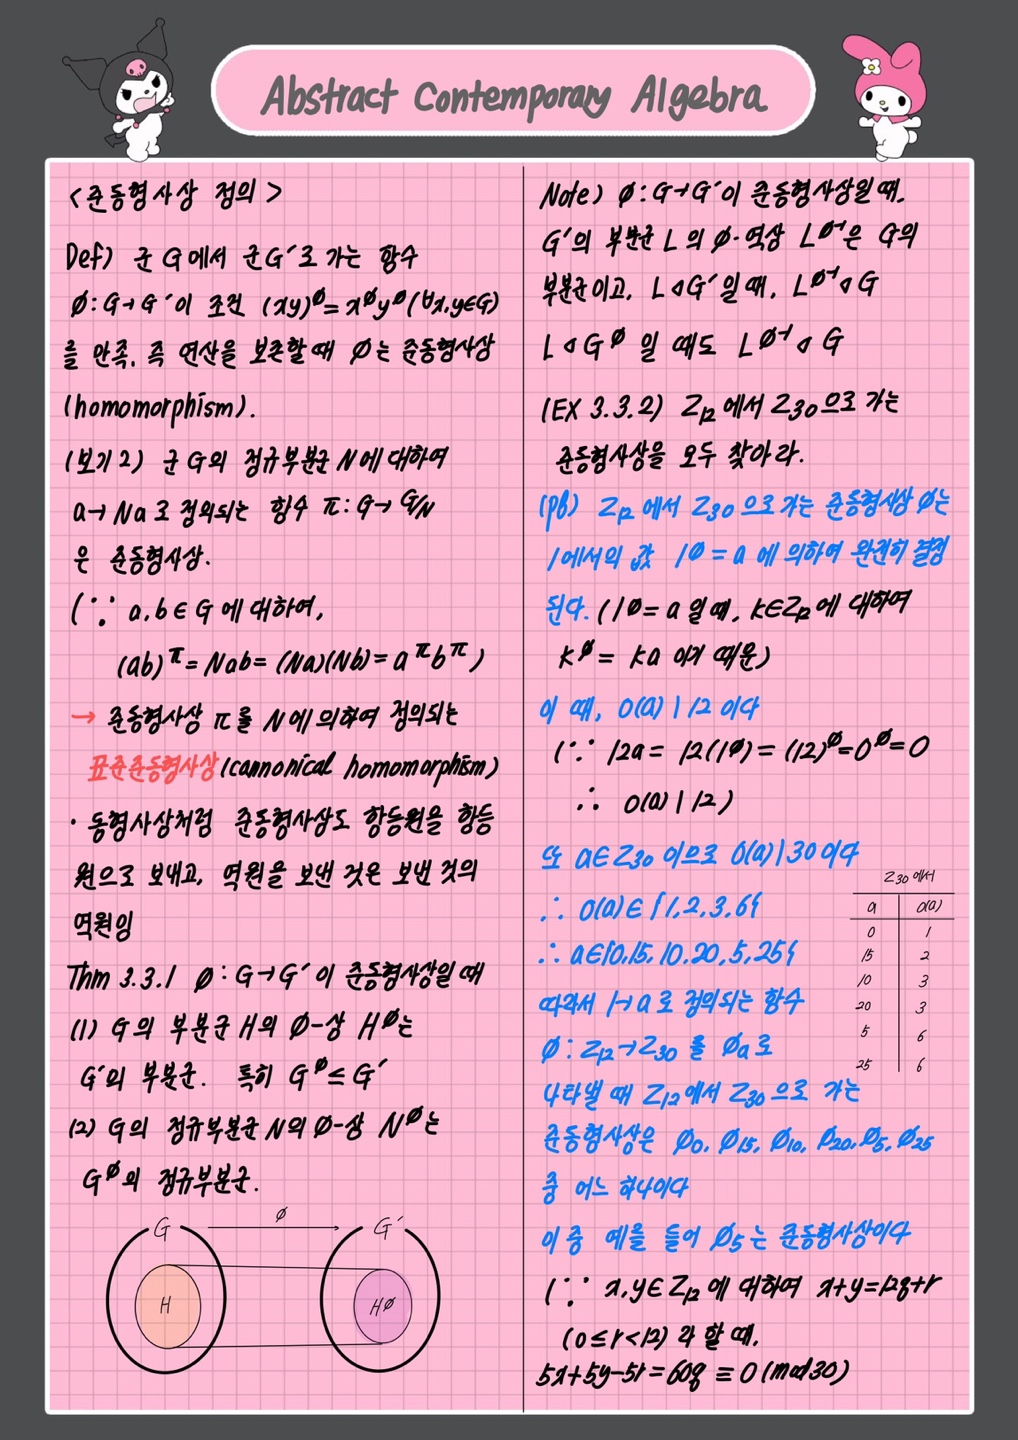 Abstract Contemporary Algebra
<준동형사상 정의>
Def) 군 G에서 군 G′로 가는 함수
∅: G→G′이 조건 (xy)^∅=x^∅y^∅(∀x,y∈G)
를 만족, 즉 연산을 보존할때 ∅는 준동형사상
(homomorphism).
(보기2) 군 G의 정규부분군 N에 대하여
a→Na로 정의되는 함수 π: G→G/N
은 준동형사상.
(∵ a,b∈G에 대하여,
(ab)^π=Nab=(Na)(Nb)=a^πb^π)
→ 준동형사상 π를 N에 의하여 정의되는
표준준동형사상(cannonical homomorphism)
· 동형사상처럼 준동형사상도 항등원을 항등
원으로 보내고, 역원을 보낸 것은 보낸 것의
역원임
Thm 3.3.1 ∅: G→G′이 준동형사상일때
(1) G의 부분군 H의 ∅-상 H^∅는
G′의 부분군. 특히 G^∅≤G′
(2) G의 정규부분군 N의 ∅-상 N^∅는
G^∅의 정규부분군.
G ∅ G′
H H^∅
Note) ∅: G→G′이 준동형사상일때,
G′의 부분군 L의 ∅-역상 L^∅⁻¹은 G의
부분군이고, L◁G′일때, L^∅⁻¹◁G
L◁G^∅ 일 때도 L^∅⁻¹◁G
(EX 3.3.2) Z₁₂에서 Z₃₀으로 가는
준동형사상을 모두 찾아라.
(pf) Z₁₂에서 Z₃₀으로 가는 준동형사상 ∅는
1에서의 값 1^∅=a에 의하여 완전히 결정
된다. (1^∅=a일때, k∈Z₁₂에 대하여
k^∅=ka이기 때문)
이 때, O(a)|12이다
(∵ 12a=12(1^∅)=(12)^∅=0^∅=0
∴ O(a)|12)
또 a∈Z₃₀이므로 O(a)|30이다
∴ O(a)∈{1,2,3,6}
∴ a∈{0,15,10,20,5,25}
따라서 1→a로 정의되는 함수
∅: Z₁₂→Z₃₀을 ∅a로
나타낼 때 Z₁₂에서 Z₃₀으로 가는
준동형사상은 ∅₀, ∅₁₅, ∅₁₀, ∅₂₀, ∅₅, ∅₂₅
중 어느 하나이다
이중 예를 들어 ∅₅는 준동형사상이다
(∵ x,y∈Z₁₂에 대하여 x+y=12q+r
(0≤r<12)라 할때,
5x+5y-5r=60q≡0(mod30)
Z₃₀에서
a O(a)
0 1
15 2
10 3
20 3
5 6
25 6